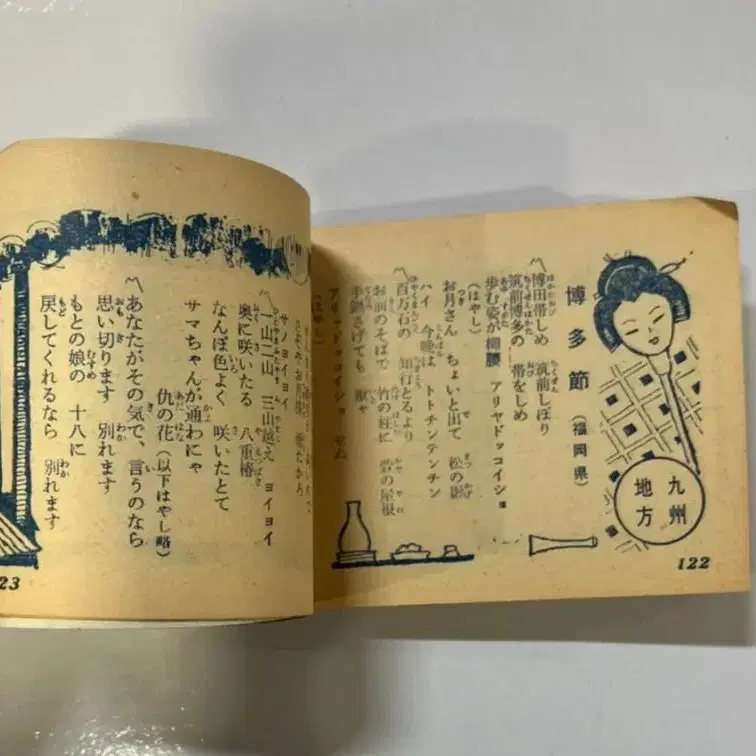 九州
地方
博多節（福岡県）
博田帯しめ　筑前しぼり
筑前博多の　帯をしめ
歩む姿が　柳腰　アリヤドッコイショ
（はやし）
お月さん　ちょいと出て　松の影
ハイ　今晩は　トトチンテンチン
百万石の　知行とるより
お前のそばで　竹の柱に　萱の屋根
手鍋さげても
アリャドッコイショ
（はやし）
122
サノヨイヨイ
一山二山　三山越え　ヨイヨイ
奥に咲いたる　八重椿
なんぼ色よく　咲いたとて
サマちゃんが通わにゃ
仇の花（以下はやし略）
あなたがその気で、言うのなら
思い切ります　別れます
もとの娘の　十八に
戻してくれるなら　別れます
23